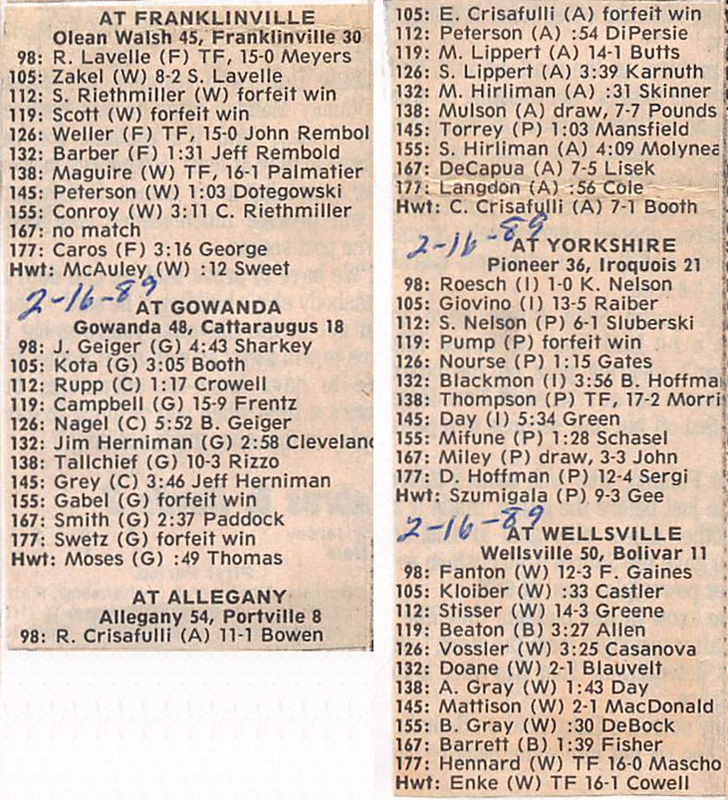 AT FRANKLINVILLE
Olean Walsh 45, Franklinville 30
98: R. Lavelle (F) TF, 15-0 Meyers
105: Zakel (W) 8-2 S. Lavelle
112: S. Riethmiller (W) forfeit win
119: Scott (W) forfeit win
126: Weller (F) TF, 15-0 John Rembol
132: Barber (F) 1:31 Jeff Rembold
138: Maguire (W) TF, 16-1 Palmatier
145: Peterson (W) 1:03 Dotegowski
155: Conroy (W) 3:11 C. Riethmiller
167: no match
177: Caros (F) 3:16 George
Hwt: McAuley (W) :12 Sweet
2-16-89
AT GOWANDA
Gowanda 48, Cattaraugus 18
98: J. Geiger (G) 4:43 Sharkey
105: Kota (G) 3:05 Booth
112: Rupp (C) 1:17 Crowell
119: Campbell (G) 15-9 Frentz
126: Nagel (C) 5:52 B. Geiger
132: Jim Herniman (G) 2:58 Cleveland
138: Tallchief (G) 10-3 Rizzo
145: Grey (C) 3:46 Jeff Herniman
155: Gabel (G) forfeit win
167: Smith (G) 2:37 Paddock
177: Swetz (G) forfeit win
Hwt: Moses (G) :49 Thomas
AT ALLEGANY
Allegany 54, Portville 8
98: R. Crisafulli (A) 11-1 Bowen
105: E. Crisafulli (A) forfeit win
112: Peterson (A) :54 DiPersie
119: M. Lippert (A) 14-1 Butts
126: S. Lippert (A) 3:39 Karnuth
132: M. Hirliman (A) :31 Skinner
138: Mulson (A) draw, 7-7 Pounds
145: Torrey (P) 1:03 Mansfield
155: S. Hirliman (A) 4:09 Molynea
167: DeCapua (A) 7-5 Lisek
177: Langdon (A) :56 Cole
Hwt: C. Crisafulli (A) 7-1 Booth
2-16-89
AT YORKSHIRE
Pioneer 36, Iroquois 21
98: Roesch (I) 1-0 K. Nelson
105: Giovino (I) 13-5 Raiber
112: S. Nelson (P) 6-1 Sluberski
119: Pump (P) forfeit win
126: Nourse (P) 1:15 Gates
132: Blackmon (I) 3:56 B. Hoffma
138: Thompson (P) TF, 17-2 Morri
145: Day (I) 5:34 Green
155: Mifune (P) 1:28 Schasel
167: Miley (P) draw, 3-3 John
177: D. Hoffman (P) 12-4 Sergi
Hwt: Szumigala (P) 9-3 Gee
2-16-89
AT WELLSVILLE
Wellsville 50, Bolivar 11
98: Fanton (W) 12-3 F. Gaines
105: Kloiber (W) :33 Castler
112: Stisser (W) 14-3 Greene
119: Beaton (B) 3:27 Allen
126: Vossler (W) 3:25 Casanova
132: Doane (W) 2-1 Blauvelt
138: A. Gray (W) 1:43 Day
145: Mattison (W) 2-1 MacDonald
155: B. Gray (W) :30 DeBock
167: Barrett (B) 1:39 Fisher
177: Hennard (W) TF 16-0 Mascho
Hwt: Enke (W) TF 16-1 Cowell